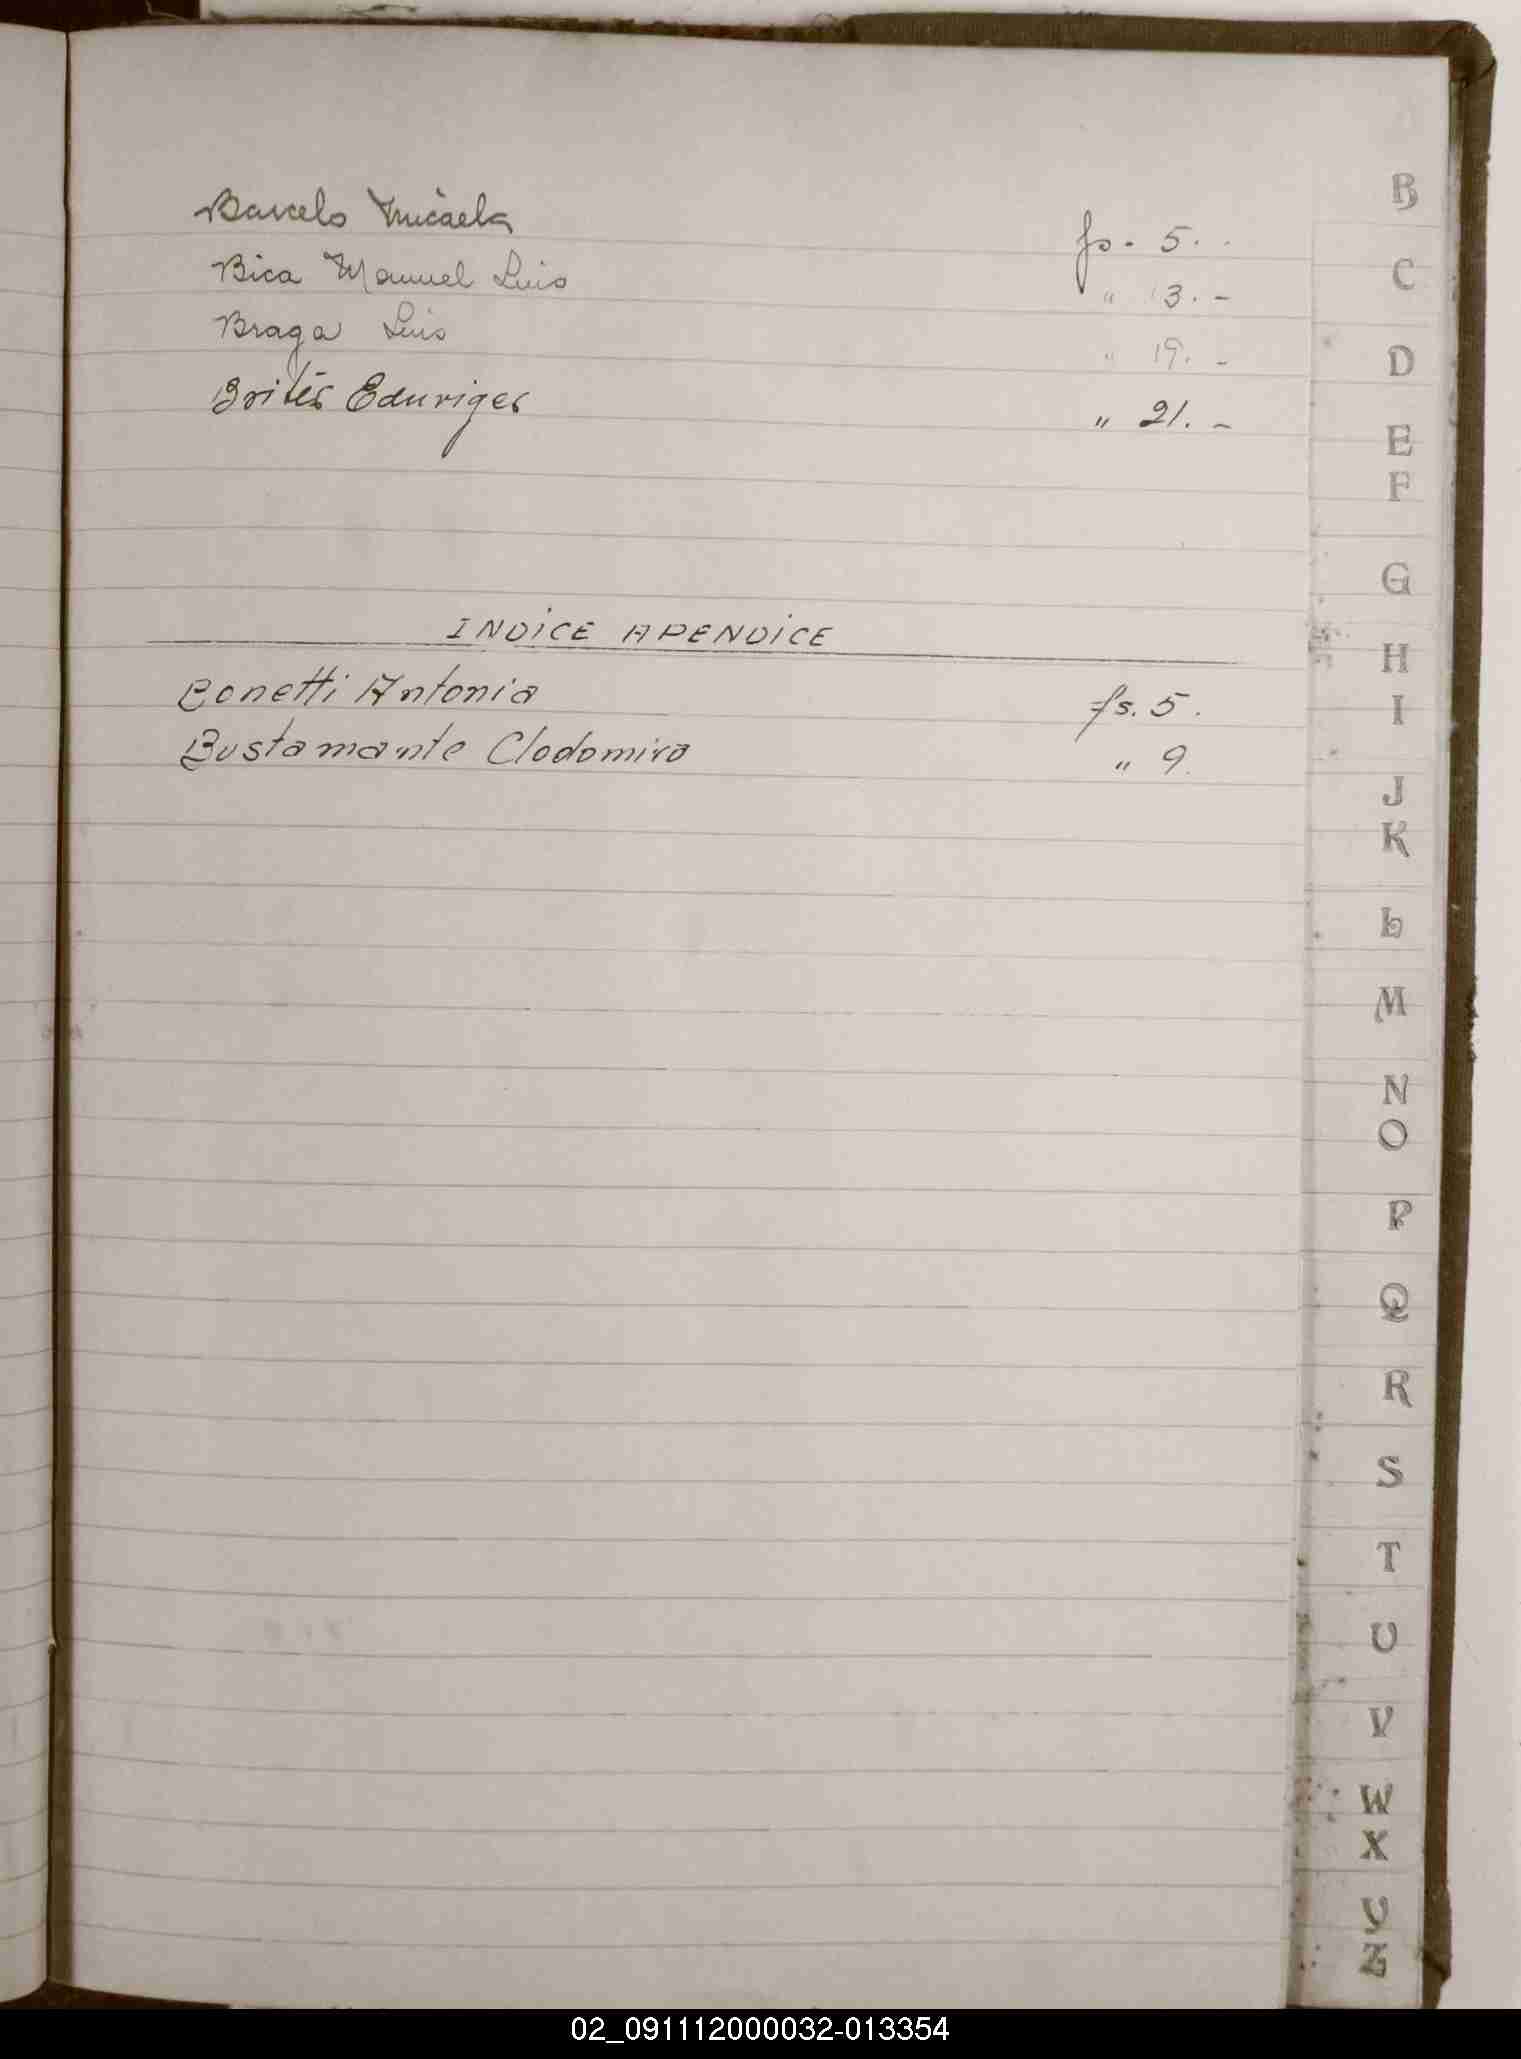 Barcelo Micaela fs. 5.
Bica Manuel Luis " 13. -
Braga Luis " 19. -
Brites Eduriges " 21. -
INDICE APENDICE
Bonetti Antonia fs. 5.
Bustamante Clodomira " 9.
B
C
D
E
F
G
H
I
J
K
L
M
N
O
P
Q
R
S
T
U
V
W
X
Y
Z
02_091112000032-013354